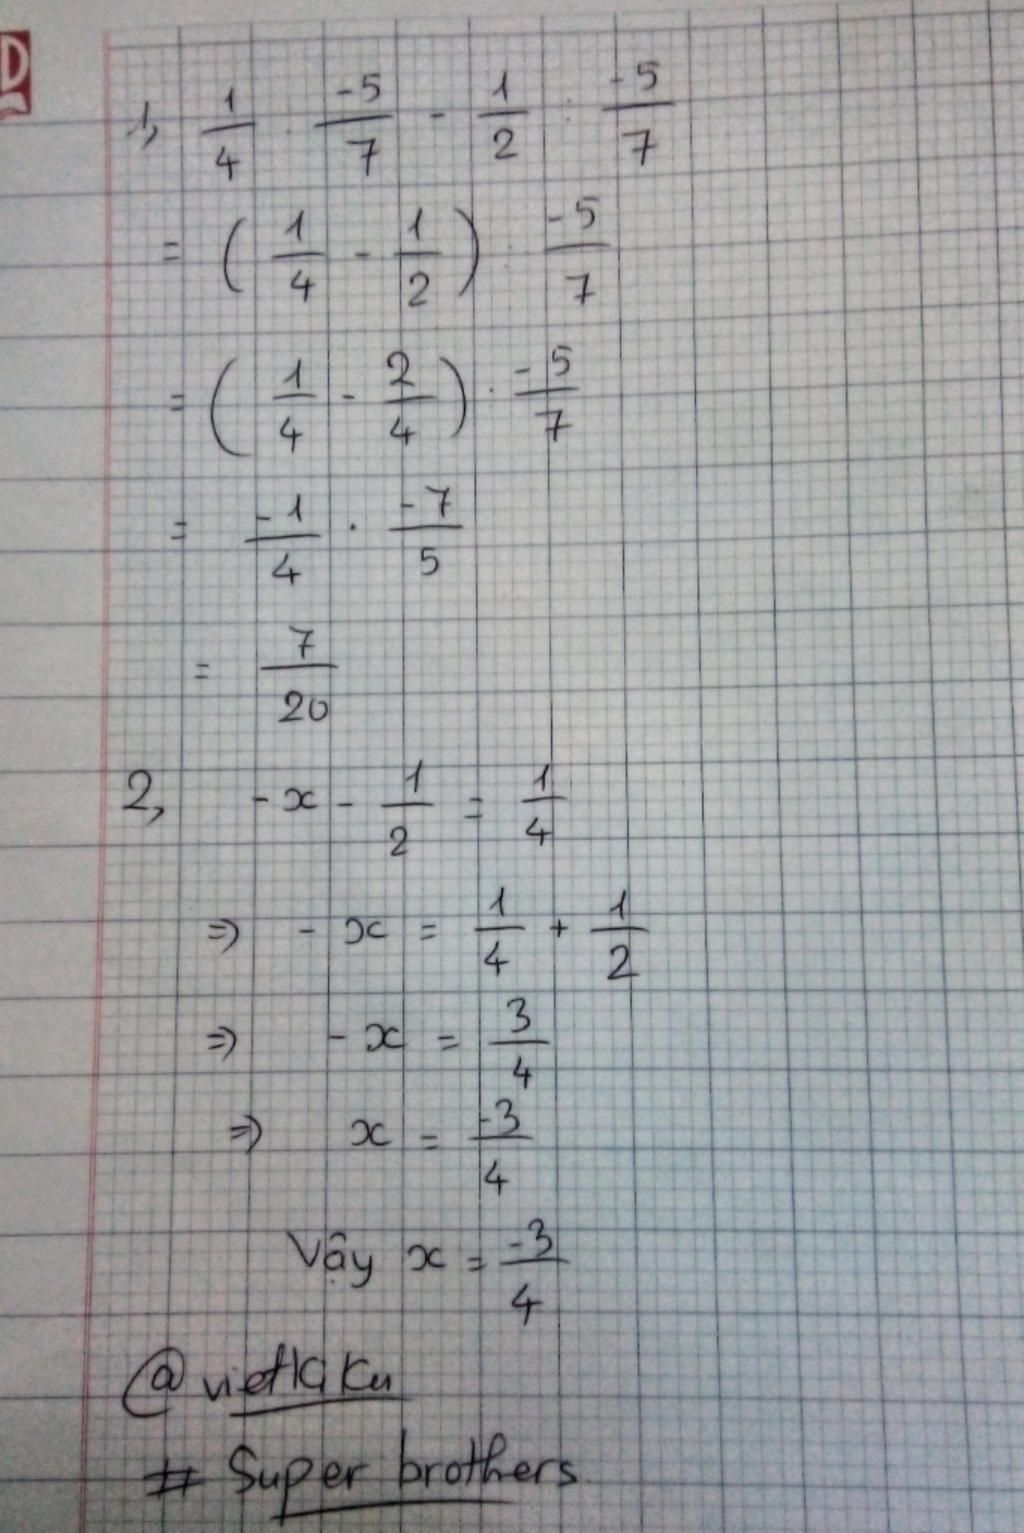 D
1, 1/4 · -5/7 - 1/2 · -5/7
= ( 1/4 - 1/2 ) · -5/7
= ( 1/4 - 2/4 ) · -5/7
= -1/4 · -7/5
= 7/20
2, -x - 1/2 = 1/4
=> -x = 1/4 + 1/2
=> -x = 3/4
=> x = -3/4
Vậy x = -3/4
@vietKiKu
# Super brothers